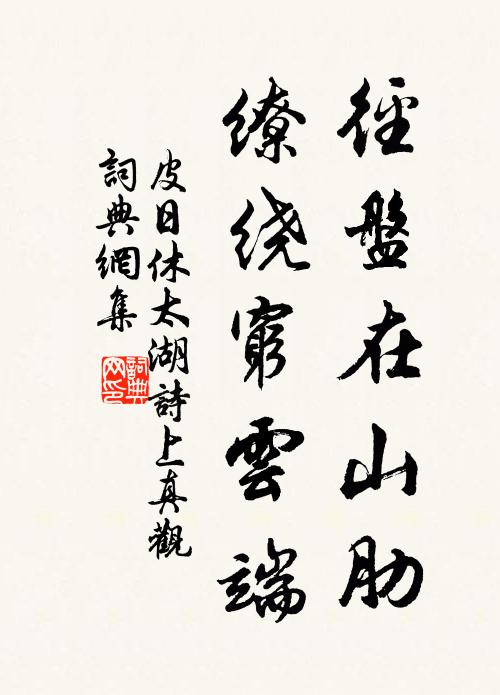 徑盤在山肋
繚繞窮雲端
皮日休太湖詩上真觀
詞典網集
詞典网印